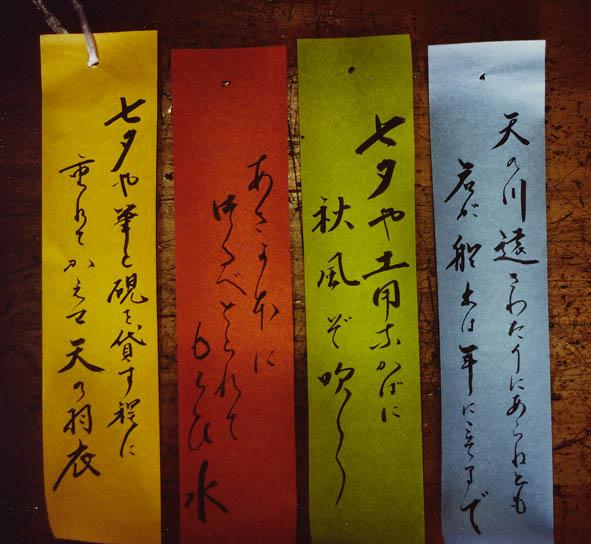 天の川遠きわたりにあらねとも
君が船出は年にこそまで
七夕や土用なかばに
秋風ぞ吹く
あさかほに
つるべとられて
もらひ水
七夕や筆と硯を貸す程に
重ねて 天の羽衣